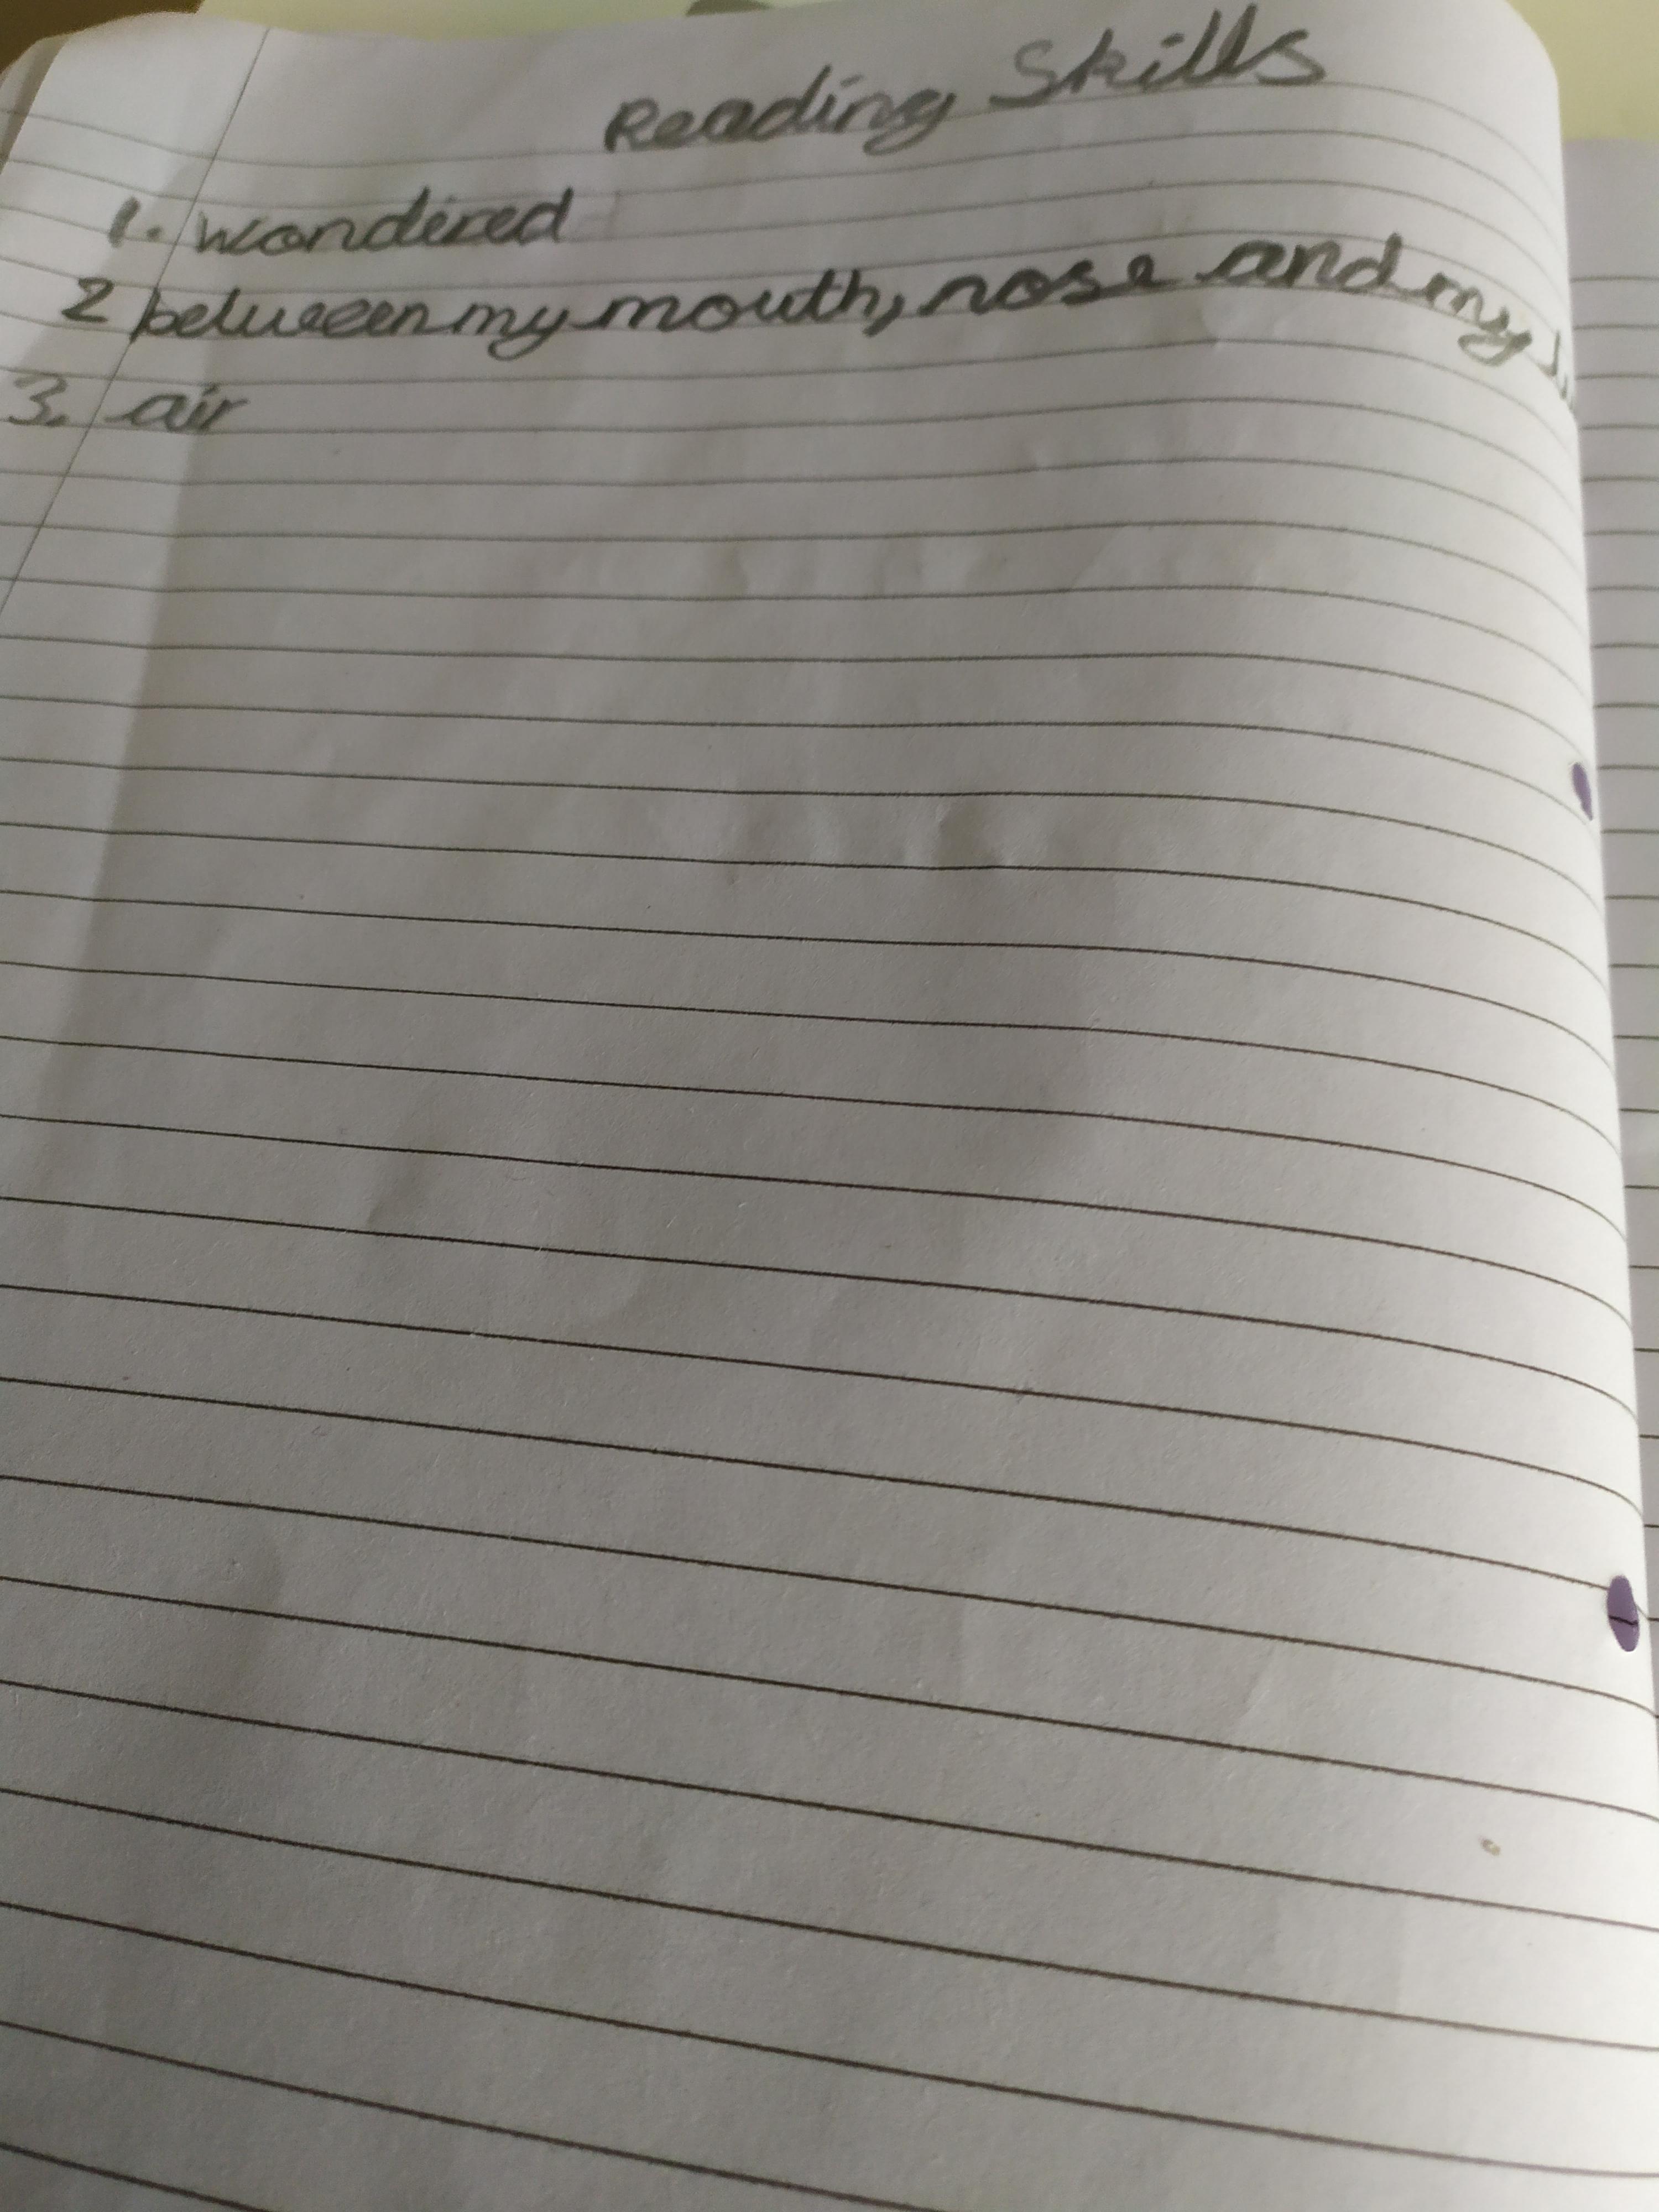 Reading Skills
1. wondered
2 between my mouth, nose and my
3. air